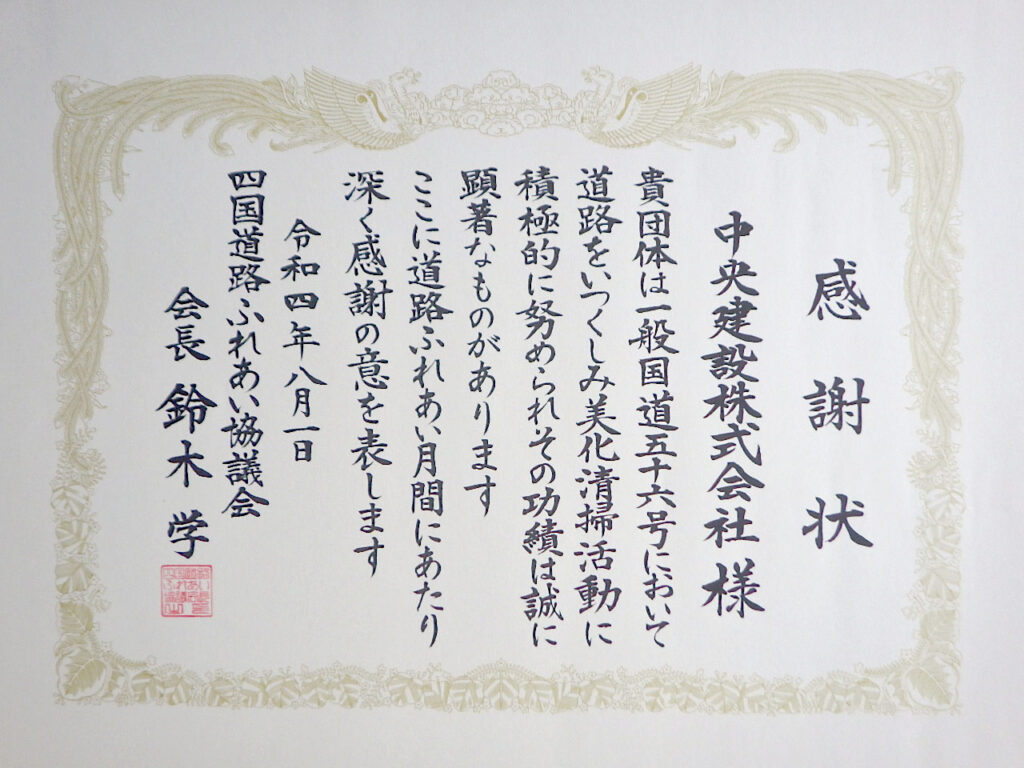 感謝状
中央建設株式会社 様
貴団体は一般国道五十六号において
道路をいつくしみ美化清掃活動に
積極的に努められその功績は誠に
顕著なものがあります
ここに道路ふれあい月間にあたり
深く感謝の意を表します
令和四年八月一日
四国道路ふれあい協議会
会長 鈴木 学